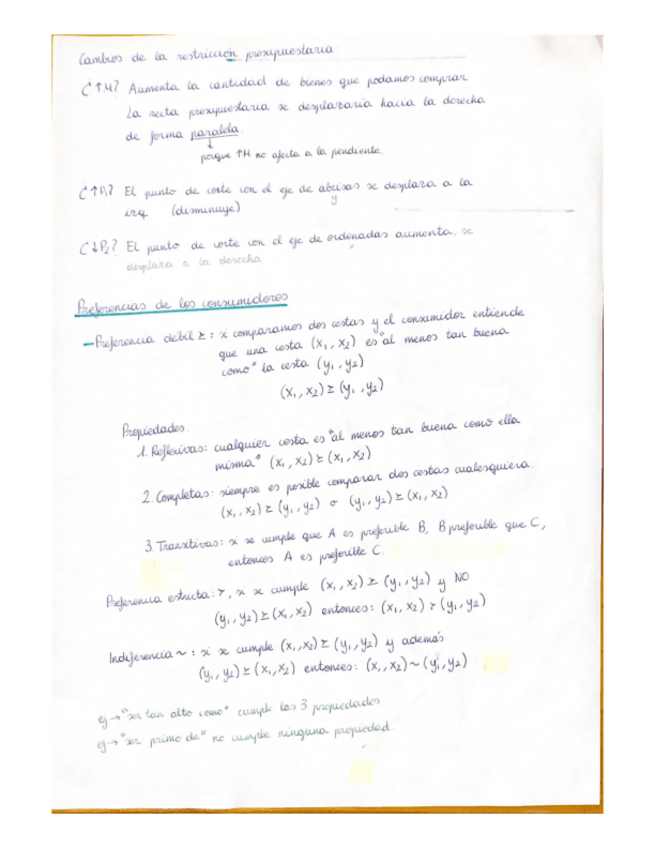 Cambios de la restricción presupuestaria:
¿↑M? Aumenta la cantidad de bienes que podamos comprar
La recta presupuestaria se desplazaría hacia la derecha
de forma paralela.
↓
porque ↑M no afecta a la pendiente.
¿↑P₁? El punto de corte con el eje de abcisas se desplaza a la
y
izq (disminuye)
¿↓P₂? El punto de corte con el eje de ordenadas aumenta, se
x
desplaza a la derecha
Preferencias de los consumidores
- Preferencia débil ≥ : si comparamos dos cestas y el consumidor entiende
que una cesta (x₁, x₂) es "al menos tan buena
como" la cesta (y₁, y₂)
(x₁, x₂) ≥ (y₁, y₂)
Propiedades.
1. Reflexivas: cualquier cesta es "al menos tan buena como ella
misma" (x₁, x₂) ≥ (x₁, x₂)
2. Completas: siempre es posible comparar dos cestas cualesquiera.
(x₁, x₂) ≥ (y₁, y₂) o (y₁, y₂) ≥ (x₁, x₂)
3. Transitivas: si se cumple que A es preferible B, B preferible que C,
entonces A es preferible C.
Preferencia estricta: >, si se cumple (x₁, x₂) ≥ (y₁, y₂) y NO
(y₁, y₂) ≥ (x₁, x₂) entonces: (x₁, x₂) > (y₁, y₂)
Indiferencia ~ : si se cumple (x₁, x₂) ≥ (y₁, y₂) y además
(y₁, y₂) ≥ (x₁, x₂) entonces: (x₁, x₂) ~ (y₁, y₂)
ej → "ser tan alto como" cumple las 3 propiedades
ej → "ser primo de" no cumple ninguna propiedad.